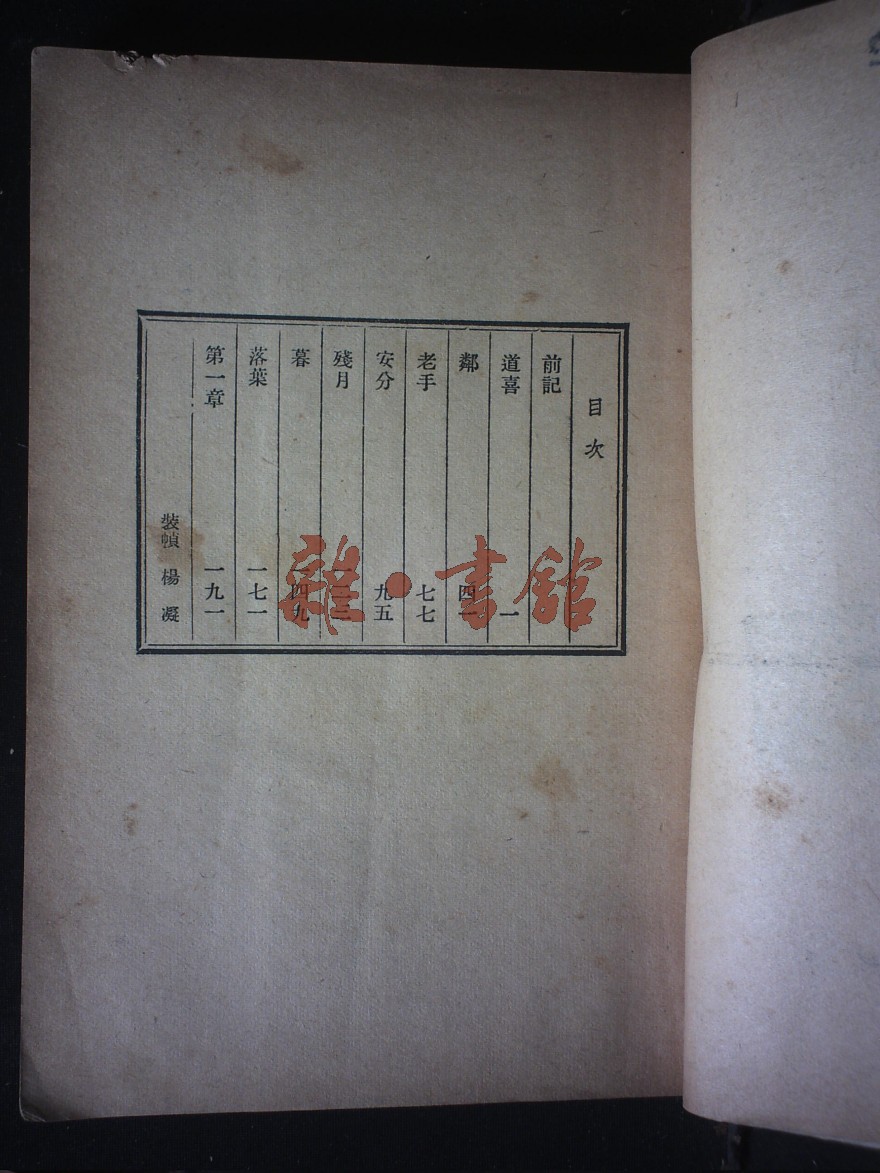 目次
前記
道喜 一
鄰 四一
老手 七七
安分 九五
殘月
暮 一四九
落葉 一七一
第一章 一九一
裝幀 楊凝
雜·書館